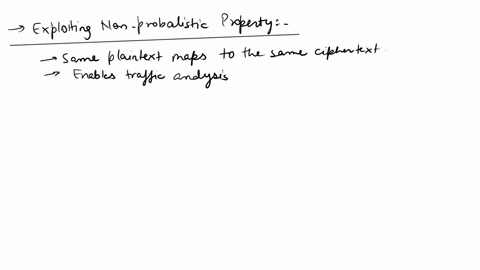 → Exploiting Non-probalistic Property:-
→ Same plaintext maps to the same ciphertext.
→ Enables traffic analysis